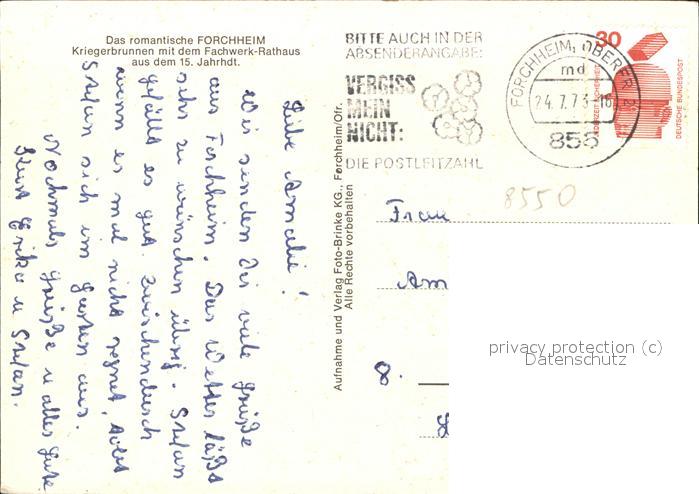 Das romantische FORCHHEIM
Kriegerbrunnen mit dem Fachwerk-Rathaus
aus dem 15. Jahrhdt.
Liebe Amalie!
Wir senden Dir viele Grüße
aus Forchheim. Das Wetter läßt
sehr zu wünschen übrig. Stefan
gefällt es gut. Zwischendurch
wenn es mal nicht regnet, tobt
Stefan sich im Garten aus.
Nochmals Grüße u alles Gute
Deine Erika u Stefan.
Aufnahme und Verlag Foto-Brinke KG., Forchheim/Ofr.
Alle Rechte vorbehalten
BITTE AUCH IN DER
ABSENDERANGABE:
VERGISS
MEIN
NICHT:
DIE POSTLEITZAHL
FORCHHEIM, OBERFR
md
24.7.73-16
855
30
DEUTSCHE BUNDESPOST
8550
Frau
Am
8.
privacy protection (c)
Datenschutz